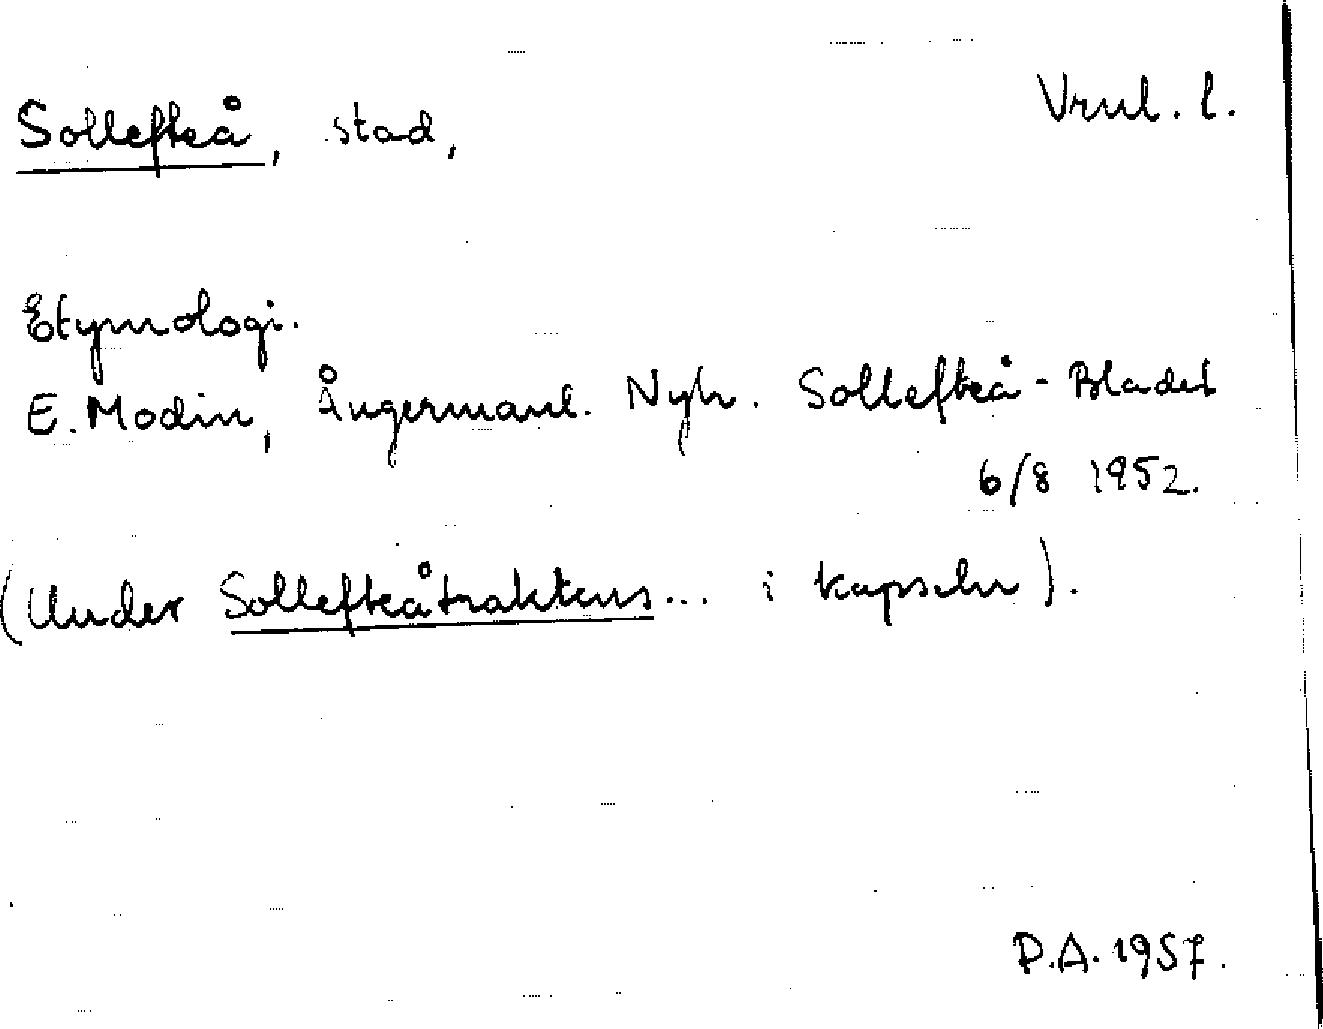 Sollefteå, stad, Vrnl. l.
Etymologi.
E. Modin, Ångermanl. Nyh. Sollefteå-Bladet
6/8 1952.
(Under Sollefteåtraktens... i kapseln).
P.A. 1957.